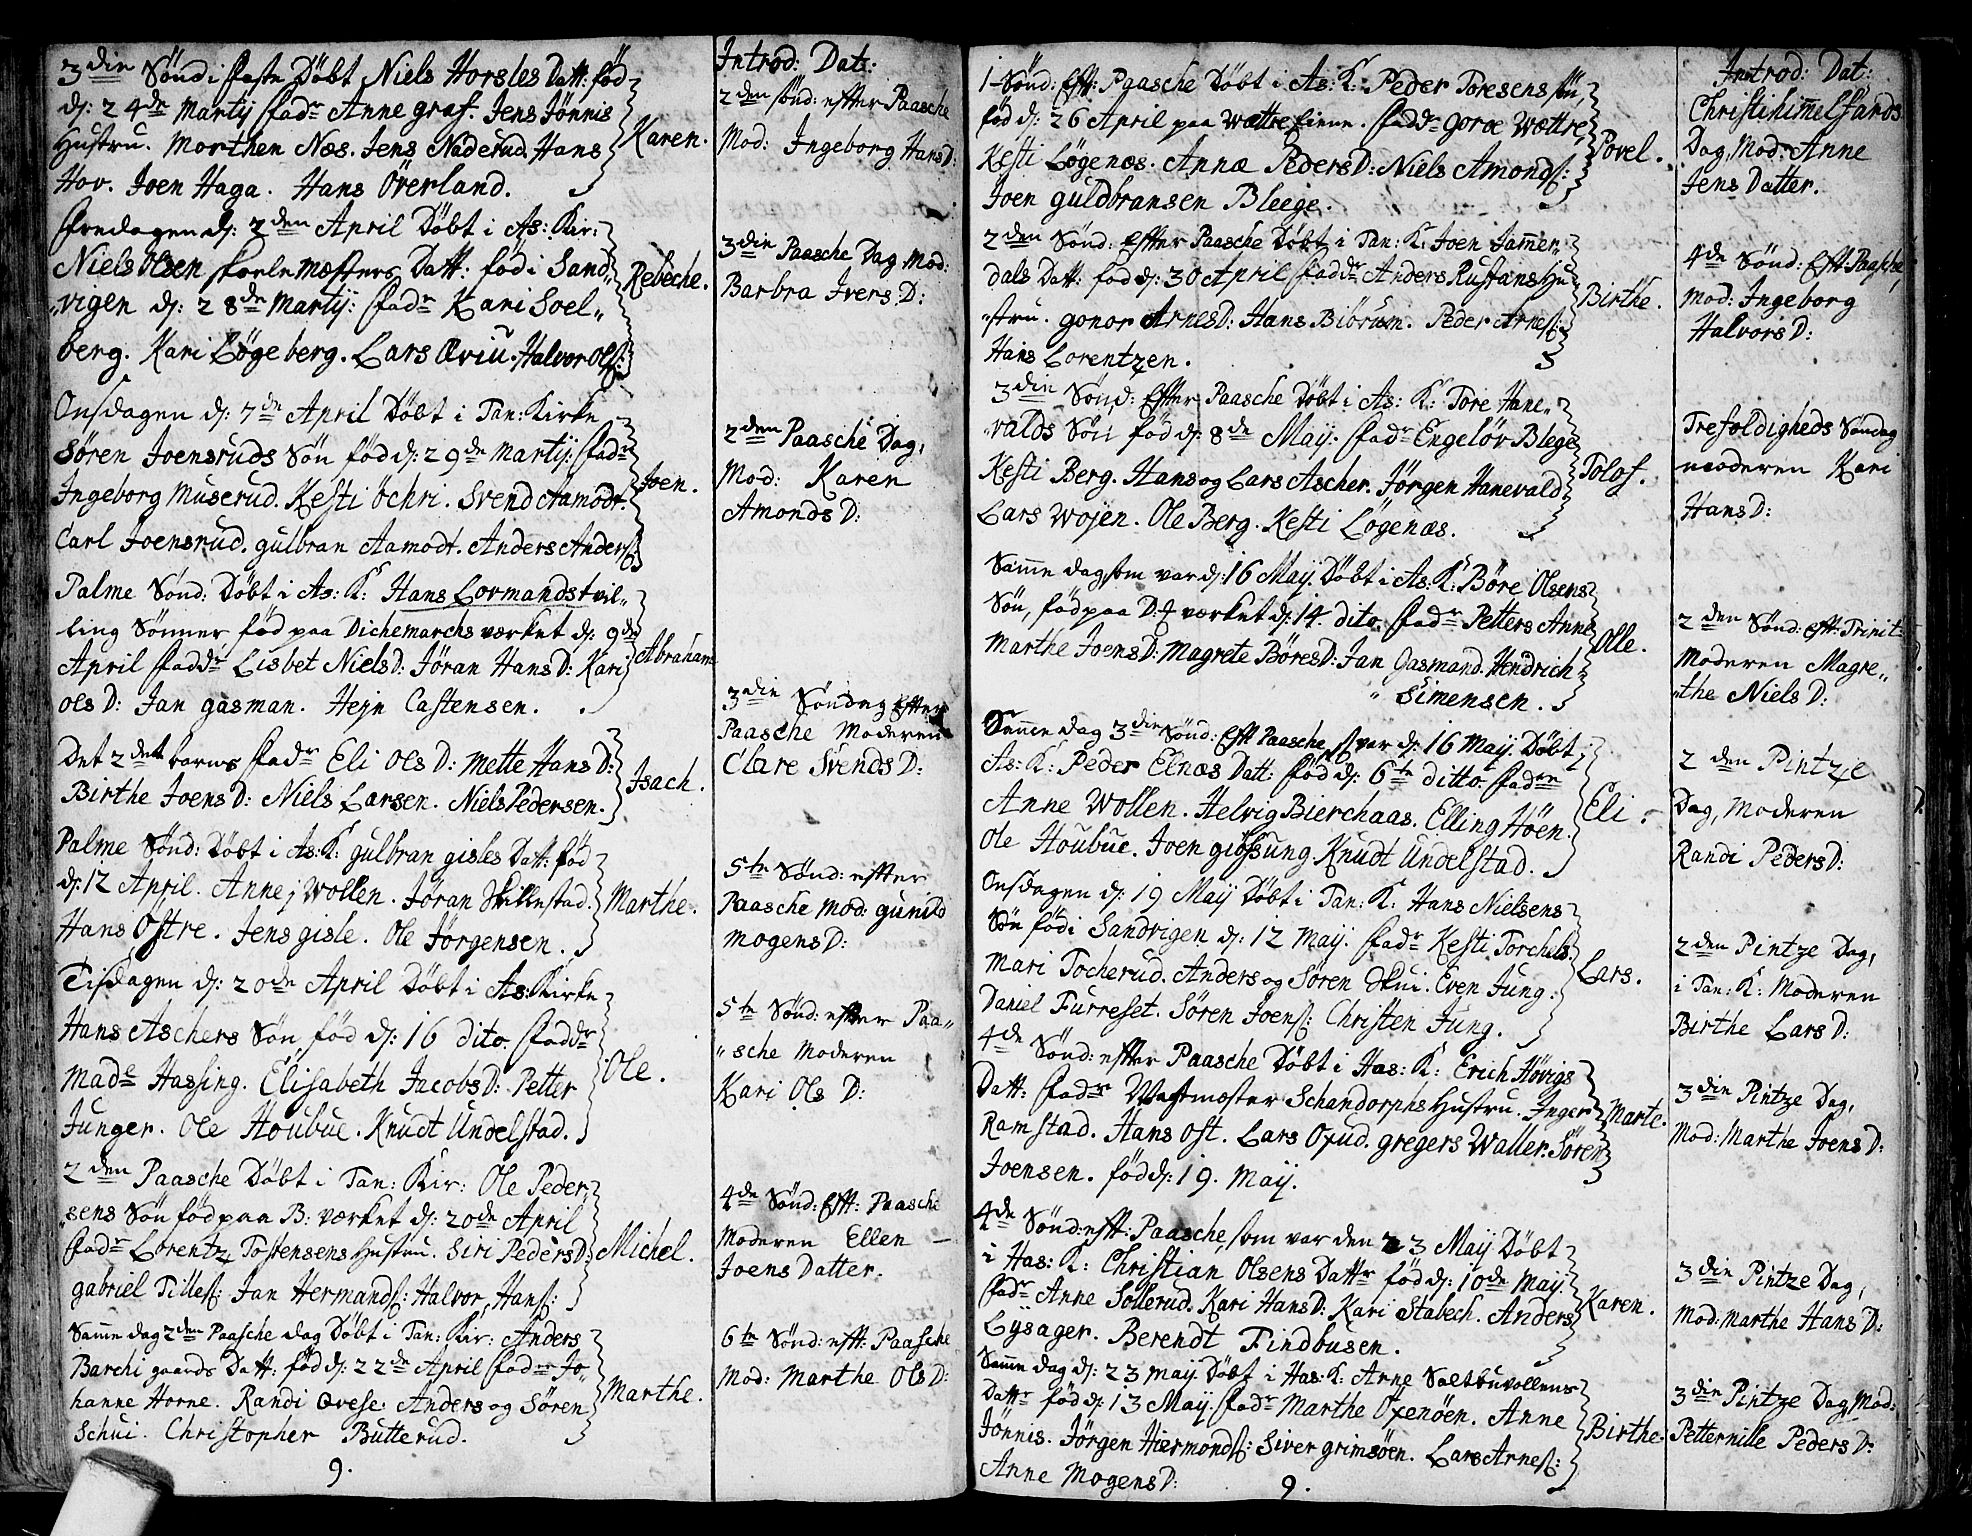 3die Sönd i faste Döbt Niels Horsles Datt: föd
d: 24de Martij fadr Anne graf. Jens Jönnis
Hustru. Morthen Næs. Jens Naderud. Hans
Hov. Joen Haga. Hans Överland.
Karen.
Introd: Dat:
2den sönd: efter Paasche
Mod: Ingeborg HansD:
fredagen d: 2den April Döbt i As: Kir:
Niels Olsen skoelemæsters Datt: föd i Sand„
„vigen d: 28de Martij: fadr Kari Soel„
berg. Kari Løgeberg. Lars Æviu. Halvor Ols:
Rebeche.
3die Paasche Dag Mod:
Barbra Ivers D:
Onsdagen d: 7de April Döbt i Tan: Kirke
Sören Joensruds Sön föd d: 29de Martij: fadr
Ingeborg Muserud. Kesti Öchri. Svend Aamodt.
Carl Joensrud. gulbran Aamodt. Anders Anders:
Joen.
2den Paasche Dag,
Mod: Karen
Amonds D:
Palme Sönd: Döbt i As: K: Hans Lormands tvil„
ling Sönner föd paa Dichemarchs værket d: 9de
April fadr Lisbet Niels D: Jöran Hans D: Kari
Ols D: Jan gasman. Hejn Castensen.
Abraham
3die Söndag efter
Paasche Moderen
Clare Svends D:
Det 2det barns fadr Eli Ols D: Mette Hans D:
Birthe Joens D: Niels Larsen. Niels Pedersen.
Isach.
Palme Sönd: Döbt i As: K: gulbran gisles Datt: föd
d: 12 April. Anne Wollen. Jöran Skillestad.
Hans Ostre. Jens gisle. Ole Jörgensen.
Marthe.
5te Sönd: efter
Paasche Mod: gunild
Mogens D:
Tisdagen d: 20de April Döbt i As: Kirke
Hans Aschers Sön föd d: 16 dito. fadr
Made Hassing. Elisabeth Jacobs D: Petter
Junger. Ole Houbue. Knudt Undelstad.
Ole.
5te Sönd: efter Paa„
„sche Moderen
Kari Ols D:
2den Paasche Döbt i Tan: Kir: Ole Peder
„sens Sön föd paa B: værket d: 20de April
fadr Lorentz Tostensens Hustru. Siri Peders D:
gabriel Tilles: Jan Hermands: Halvor Hans:
Michel.
4de Sönd: Eft: Paasche
Moderen Ellen
Joens Datter.
Samme dag 2den Paasche dag Döbt i Tan: Kir: Anders
Barchi gaards Datt: föd d: 22de April fadr Jo„
hanne Horne. Randi Qvese. Anders og Sören
Schui. Christopher Butterud.
Marthe.
6te Sönd: eft: Paasche
Mod: Marthe Ols D:
9.
1. Sönd: Eft: Paasche Döbt i As: K: Peder Toresens Sön,
föd d: 26 April paa Wættre Eiene. fadr Goroe Wættre,
Kesti Løgenæs. Annæ Peders D: Niels Amonds:
Joen guldbransen Blege.
Povel.
Introd: Dat:
Christihimmelfards
Dag, Mod: Anne
Jens Datter.
2den Sönd: Efter Paasche Döbt i Tan: K: Joen Jammer„
dals Datt: föd d: 30 April fadr Anders Rustans Hu
„stru. gonor Arnes D: Hans Bibrum. Peder Arnes:
Hans Lorentzen.
Birthe.
4de Sönd: Eft: Paasche,
Mod: Ingeborg
Halvors D:
3die Sönd: Efter Paasche Döbt i As: K: Tore Hane„
valds Sön föd d: 8de May. fadr Engeløv Blege
Kesti Berg. Hans og Lars Ascher. Jörgen Hanevald
Lars Wojen. Ole Berg. Kesti Løgenæs.
Tolof.
Trefoldigheds Söndag
moderen Kari
Hans D:
Samme dag som var d: 16 May. Döbt i As: K: Böre Olsens
Sön, föd paa D: værket d: 14. dito. fadr Petters Anne
Marthe Joens D: Magrete Böres D: Jan Gasmand. Hendrich
„ Simensen.
Olle.
2den Sönd: Eft: Trinit:
Moderen Magre„
„the Niels D:
Samme dag 3die Sönd: Eft Paasche, var d: 16 May. Döbt i
As: K: Peder Elnæs Datt: föd d: 6te ditto. fadr
Anne Wollen. Helvig Bierchaas. Elling Höen.
Ole Houbue. Joen giössung. Knudt Undelstad.
Eli.
2den Pintze
Dag, Moderen
Randi Peders D:
Onsdagen d: 19 May Döbt i Tan: K: Hans Nielsens
Sön föd i Sandvigen d: 12 May. fadr Kesti Torchels:
Mari Tocherud. Anders og Sören Skui. Even Jung.
Daniel Furreset. Sören Joens: Christen Jung.
Lars.
2den Pintze Dag,
i Tan: K: Moderen
Birthe Lars D:
4de Sönd: efter Paasche Döbt i Has: K: Erich Hövigs
Datt: fadr Wagtmæster Schandorphs Hustru. Inger
Ramstad. Hans Ost. Lars Oxud. gregers Waller. Sören
Joensen. föd d: 19. May.
Marte.
3die Pintze Dag,
Mod: Marthe Joens D:
4de Sönd: eft: Paasche, som var den 23 May Döbt
i Has: K: Christian Olsens Dattr föd d: 10de May.
fadr Anne Sollerud. Kari Hans D: Kari Stabech. Anders
Lysager. Berendt Findbusen.
Karen.
3die Pintze Dag,
Mod: Marthe Hans D:
Samme dag d: 23 May. Döbt i Has: K: Arne Saltbuvollens
Dattr föd d: 13 May. fadr Marthe Oxenöen. Anne
Jönnis. Jörgen Hiermonds: Siver grimsöen. Lars Arnes:
Anne Mogens D:
Birthe.
3die Pintze Dag, Mod:
Petternille Peders D:
9.